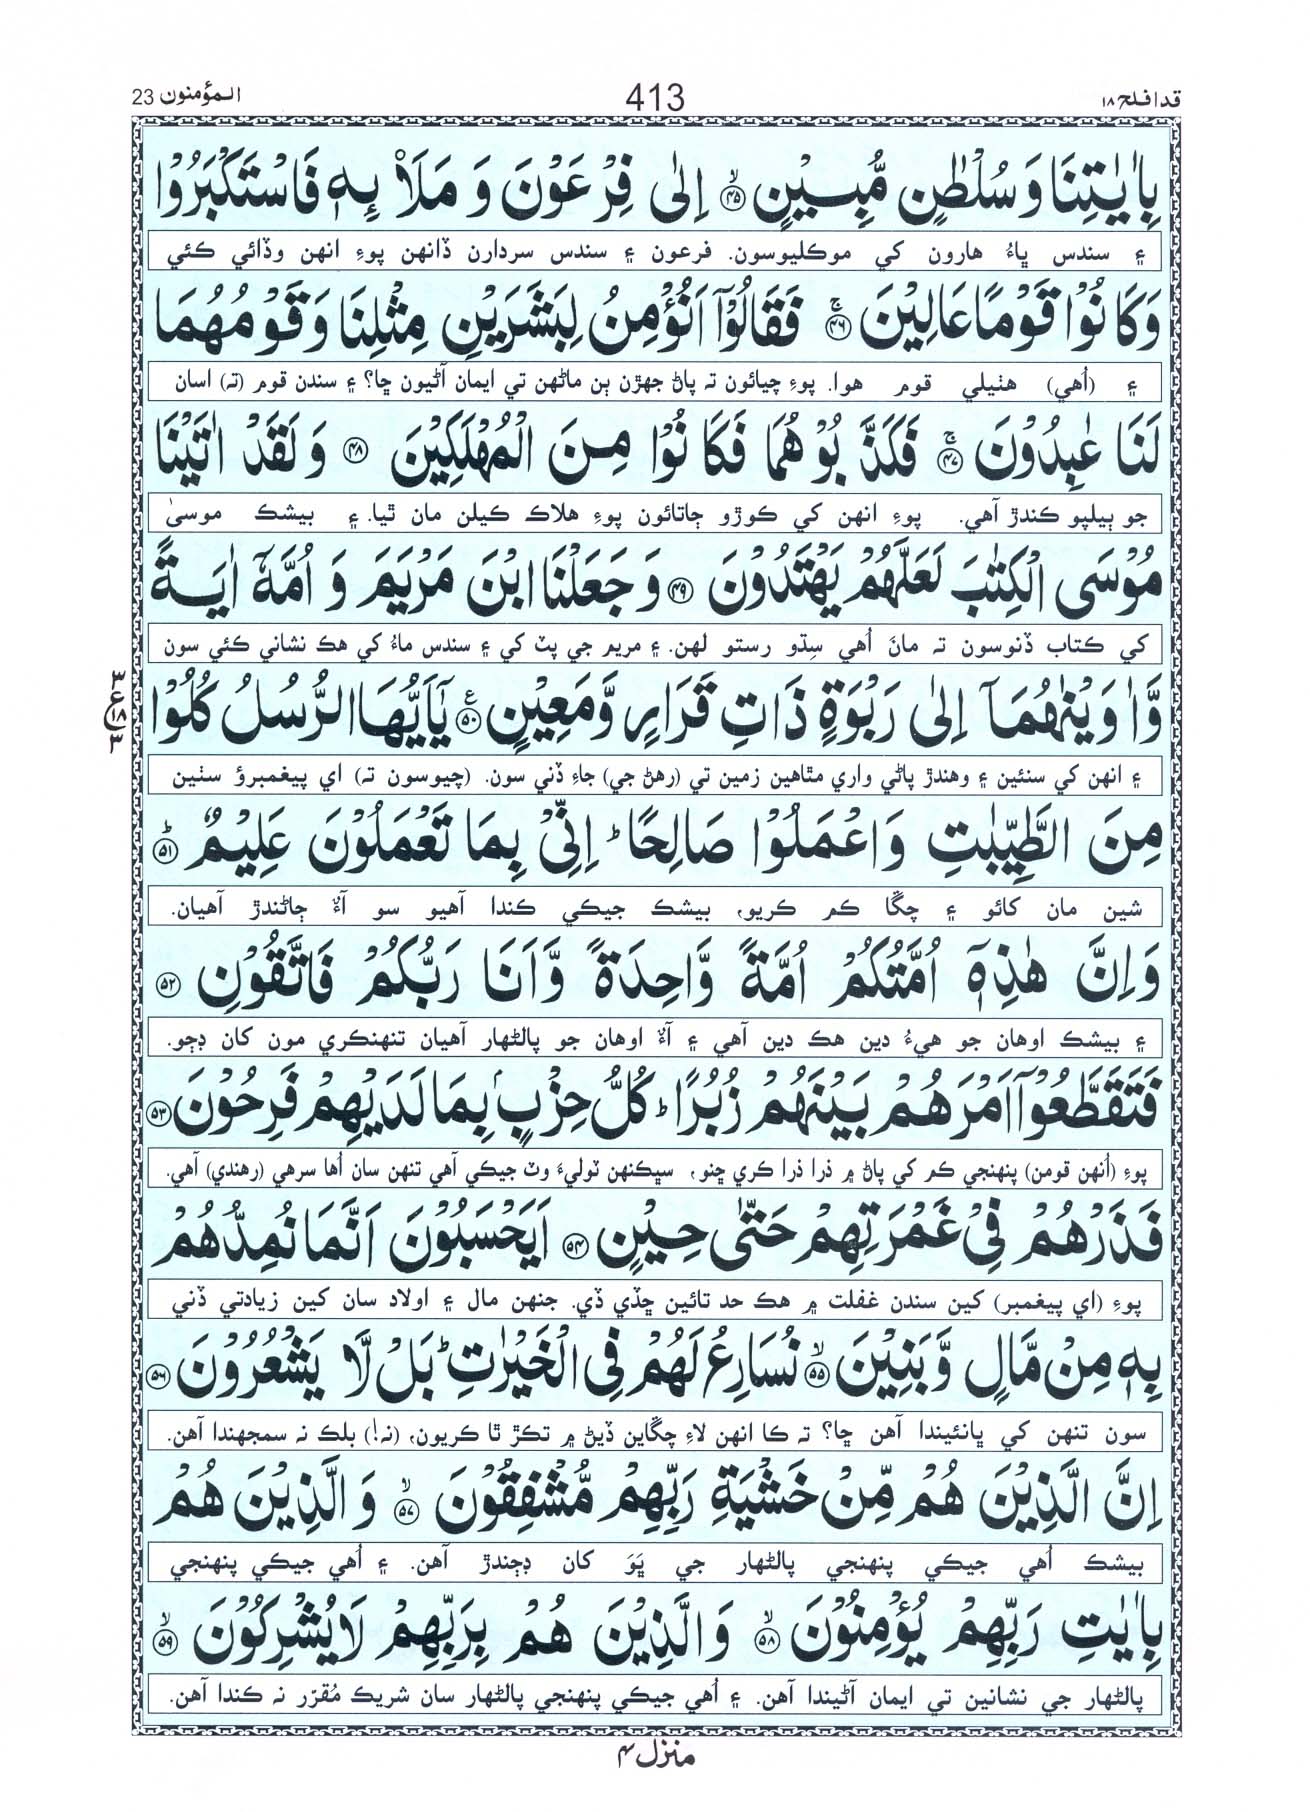 قد افلح ١٨
413
المؤمنون 23
بِاٰيٰتِنَا وَسُلْطٰنٍ مُّبِيْنٍ ۙ﴿۴۵﴾ اِلٰى فِرْعَوْنَ وَ مَلَا۟ ئِهٖ فَاسْتَكْبَرُوْا
۽ سندس ڀاءُ هارون کي موڪليوسون. فرعون ۽ سندس سردارن ڏانهن پوءِ انهن وڏائي ڪئي
وَكَانُوْا قَوْمًا عَالِيْنَ ۚ﴿۴۶﴾ فَقَالُوْۤا اَنُؤْمِنُ لِبَشَرَيْنِ مِثْلِنَا وَقَوْمُهُمَا
۽ (اُهي) هٺيلي قوم هوا. پوءِ چيائون تہ پاڻ جهڙن ٻن ماڻهن تي ايمان آڻيون ڇا؟ ۽ سندن قوم (تہ) اسان
لَنَا عٰبِدُوْنَ ۚ﴿۴۷﴾ فَكَذَّبُوْهُمَا فَكَانُوْا مِنَ الْمُهْلَكِيْنَ ﴿۴۸﴾ وَلَقَدْ اٰتَيْنَا
جو ٻيلپو ڪندڙ آهي. پوءِ انهن کي ڪوڙو ڄاتائون پوءِ هلاڪ ڪيلن مان ٿيا. ۽ بيشڪ موسيٰ
مُوْسَى الْكِتٰبَ لَعَلَّهُمْ يَهْتَدُوْنَ ﴿۴۹﴾ وَجَعَلْنَا ابْنَ مَرْيَمَ وَ اُمَّهٗۤ اٰيَةً
کي ڪتاب ڏنوسون تہ مانَ اُهي سِڌو رستو لهن. ۽ مريم جي پٽ کي ۽ سندس ماءُ کي هڪ نشاني ڪئي سون
وَّاٰوَيْنٰهُمَاۤ اِلٰى رَبْوَةٍ ذَاتِ قَرَارٍ وَّمَعِيْنٍ ﴿۵۰﴾ؑ يٰۤاَيُّهَا الرُّسُلُ كُلُوْا
۽ انهن کي سنئين ۽ وهندڙ پاڻي واري مٿاهين زمين تي (رهڻ جي) جاءِ ڏني سون. (چيوسون تہ) اي پيغمبرؤ سٺين
٣ ع ١٨ ٣
مِنَ الطَّيِّبٰتِ وَاعْمَلُوْا صَالِحًا ؕ اِنِّيْ بِمَا تَعْمَلُوْنَ عَلِيْمٌ ؕ﴿۵۱﴾
شين مان کائو ۽ چڱا ڪم ڪريو، بيشڪ جيڪي ڪندا آهيو سو آءٌ ڄاڻندڙ آهيان.
وَاِنَّ هٰذِهٖۤ اُمَّتُكُمْ اُمَّةً وَّاحِدَةً وَّاَنَا رَبُّكُمْ فَاتَّقُوْنِ ﴿۵۲﴾
۽ بيشڪ اوهان جو هيءُ دين هڪ دين آهي ۽ آءٌ اوهان جو پالڻهار آهيان تنهنڪري مون کان ڊڄو.
فَتَقَطَّعُوْۤا اَمْرَهُمْ بَيْنَهُمْ زُبُرًا ؕ كُلُّ حِزْبٍۭ بِمَا لَدَيْهِمْ فَرِحُوْنَ ﴿۵۳﴾
پوءِ (اُنهن قومن) پنهنجي ڪم کي پاڻ ۾ ذرا ذرا ڪري ڇنو، سڀڪنهن ٽوليءَ وٽ جيڪي آهي تنهن سان اُها سرهي (رهندي) آهي.
فَذَرْهُمْ فِيْ غَمْرَتِهِمْ حَتّٰى حِيْنٍ ﴿۵۴﴾ اَيَحْسَبُوْنَ اَنَّمَا نُمِدُّهُمْ
پوءِ (اي پيغمبر) کين سندن غفلت ۾ هڪ حد تائين ڇڏي ڏي. جنهن مال ۽ اولاد سان کين زيادتي ڏني
بِهٖ مِنْ مَّالٍ وَّبَنِيْنَ ۙ﴿۵۵﴾ نُسَارِعُ لَهُمْ فِي الْخَيْرٰتِ ؕ بَلْ لَّا يَشْعُرُوْنَ ﴿۵۶﴾
سون تنهن کي ڀانئيندا آهن ڇا؟ تہ ڪا انهن لاءِ چڱاين ڏيڻ ۾ تڪڙ ٿا ڪريون، (نہ!) بلڪ نہ سمجهندا آهن.
اِنَّ الَّذِيْنَ هُمْ مِّنْ خَشْيَةِ رَبِّهِمْ مُّشْفِقُوْنَ ۙ﴿۵۷﴾ وَالَّذِيْنَ هُمْ
بيشڪ اُهي جيڪي پنهنجي پالڻهار جي ڀَوَ کان ڊڄندڙ آهن. ۽ اُهي جيڪي پنهنجي
بِاٰيٰتِ رَبِّهِمْ يُؤْمِنُوْنَ ۙ﴿۵۸﴾ وَالَّذِيْنَ هُمْ بِرَبِّهِمْ لَا يُشْرِكُوْنَ ۙ﴿۵۹﴾
پالڻهار جي نشانين تي ايمان آڻيندا آهن. ۽ اُهي جيڪي پنهنجي پالڻهار سان شريڪ مُقرّر نہ ڪندا آهن.
منزل ۴